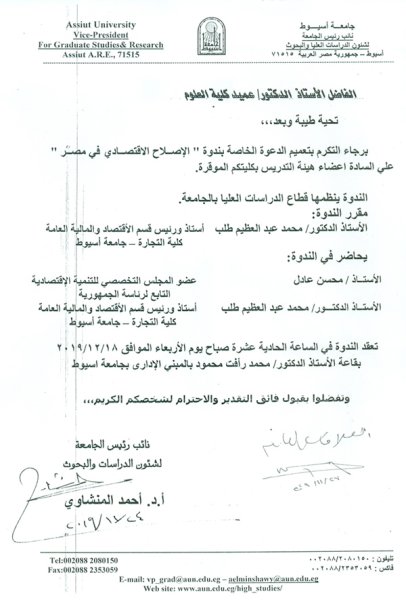 Assiut University
Vice-President
For Graduate Studies& Research
Assiut A.R.E., 71515
جامعة أسيوط
نائب رئيس الجامعة
لشئون الدراسات العليا والبحوث
أسيوط – جمهورية مصر العربية ٧١٥١٥
الفاضل الأستاذ الدكتور/ عميد كلية العلوم
تحية طيبة وبعد،،،
برجاء التكرم بتعميم الدعوة الخاصة بندوة " الإصلاح الاقتصادي في مصر "
علي السادة اعضاء هيئة التدريس بكليتكم الموقرة.
الندوة ينظمها قطاع الدراسات العليا بالجامعة.
مقرر الندوة:
الأستاذ الدكتور/ محمد عبد العظيم طلب أستاذ ورئيس قسم الأقتصاد والمالية العامة
كلية التجارة – جامعة أسيوط
يحاضر في الندوة:
الأستاذ/ محسن عادل عضو المجلس التخصصي للتنمية الإقتصادية
التابع لرئاسة الجمهورية
الأستاذ الدكتور/ محمد عبد العظيم طلب أستاذ ورئيس قسم الأقتصاد والمالية العامة
كلية التجارة – جامعة أسيوط
تعقد الندوة في الساعة الحادية عشرة صباح يوم الأربعاء الموافق ٢٠١٩/١٢/١٨
بقاعة الأستاذ الدكتور/ محمد رأفت محمود بالمبني الإدارى بجامعة اسيوط
وتفضلوا بقبول فائق التقدير والاحترام لشخصكم الكريم،،،
نائب رئيس الجامعة
لشئون الدراسات والبحوث
أ.د. أحمد المنشاوي
Tel:002088 2080150
Fax:002088 2353059
تليفون : ٠٠٢٠٨٨/٢٠٨٠١٥٠
فاكس : ٠٠٢٠٨٨/٢٣٥٣٠٥٩
E-mail: vp_grad@aun.edu.eg – aelminshawy@aun.edu.eg
Web site: www.aun.edu.eg/high_studies/